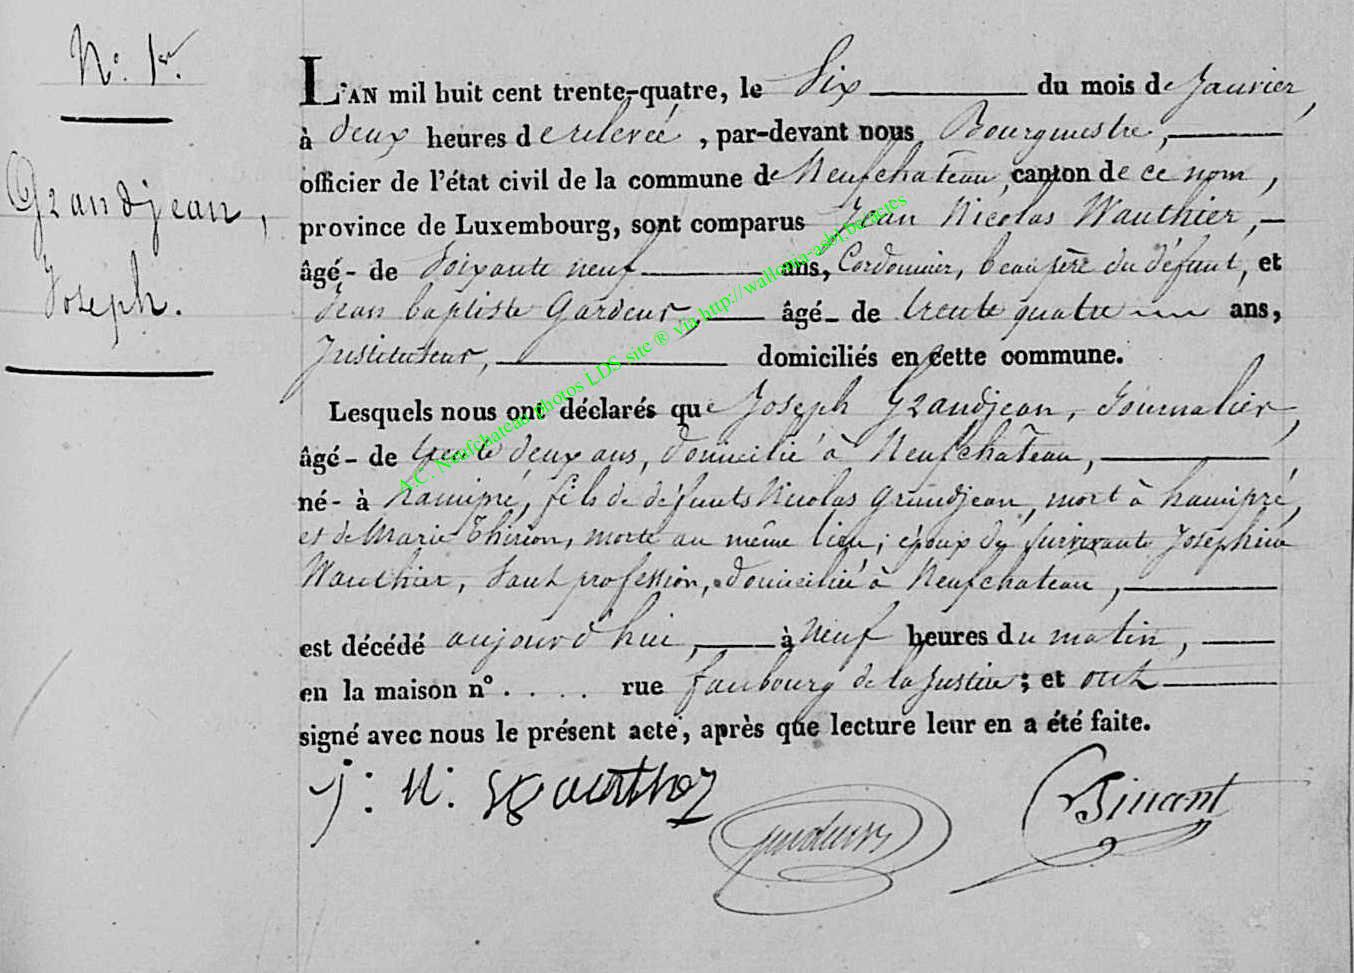 N.° 1er.
Grandjean,
Joseph.
L'AN mil huit cent trente-quatre, le Six du mois de Janvier,
à deux heures de relevée, par-devant nous Bourgmestre,
officier de l'état civil de la commune de Neufchateau, canton de ce nom,
province de Luxembourg, sont comparus Jean Nicolas Wauthier,
âgé - de Soixante neuf ans, Cordonnier, beaupère du défunt, et
Jean baptiste Gardeur, âgé - de trente quatre ans,
Instituteur, domiciliés en cette commune.
Lesquels nous ont déclarés que Joseph Grandjean, Journalier,
âgé - de trente deux ans, domicilié à Neufchâteau,
né - à hamipré, fils de défunts Nicolas Grandjean, mort à hamipré,
et de Marie Thirion, morte au même lieu; époux de survivante Josephine
Wauthier, Sans profession, domiciliée à Neufchateau,
est décédé aujourd'hui, à Neuf heures du matin,
en la maison n° . . . . rue faubourg de la Justice; et ont
signé avec nous le présent acte, après que lecture leur en a été faite.
J: N: Wauthier
Dinant
A.C. Neufchateau photos LDS site ® via http://wallonia-asbl.be/actes